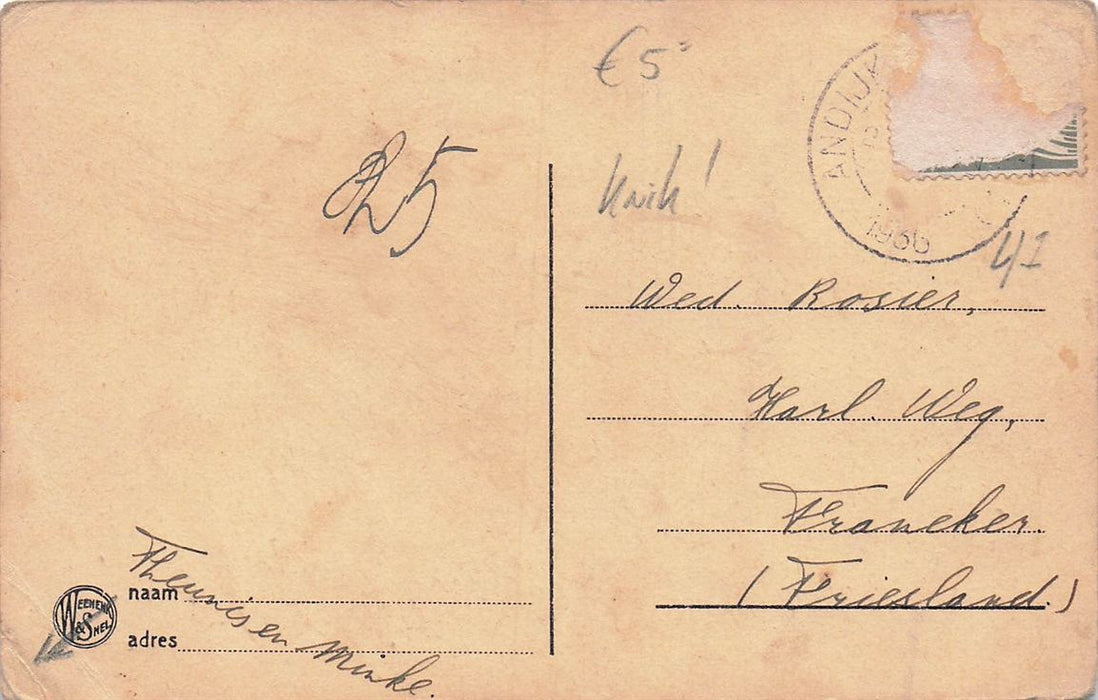 € 5=
ANDIJK
1936
825
Knik!
41
Wed. Rosier,
Harl. Weg,
Franeker.
(Friesland.)
WEENENK
& SNEL
naam
adres
Theunis en Minke.